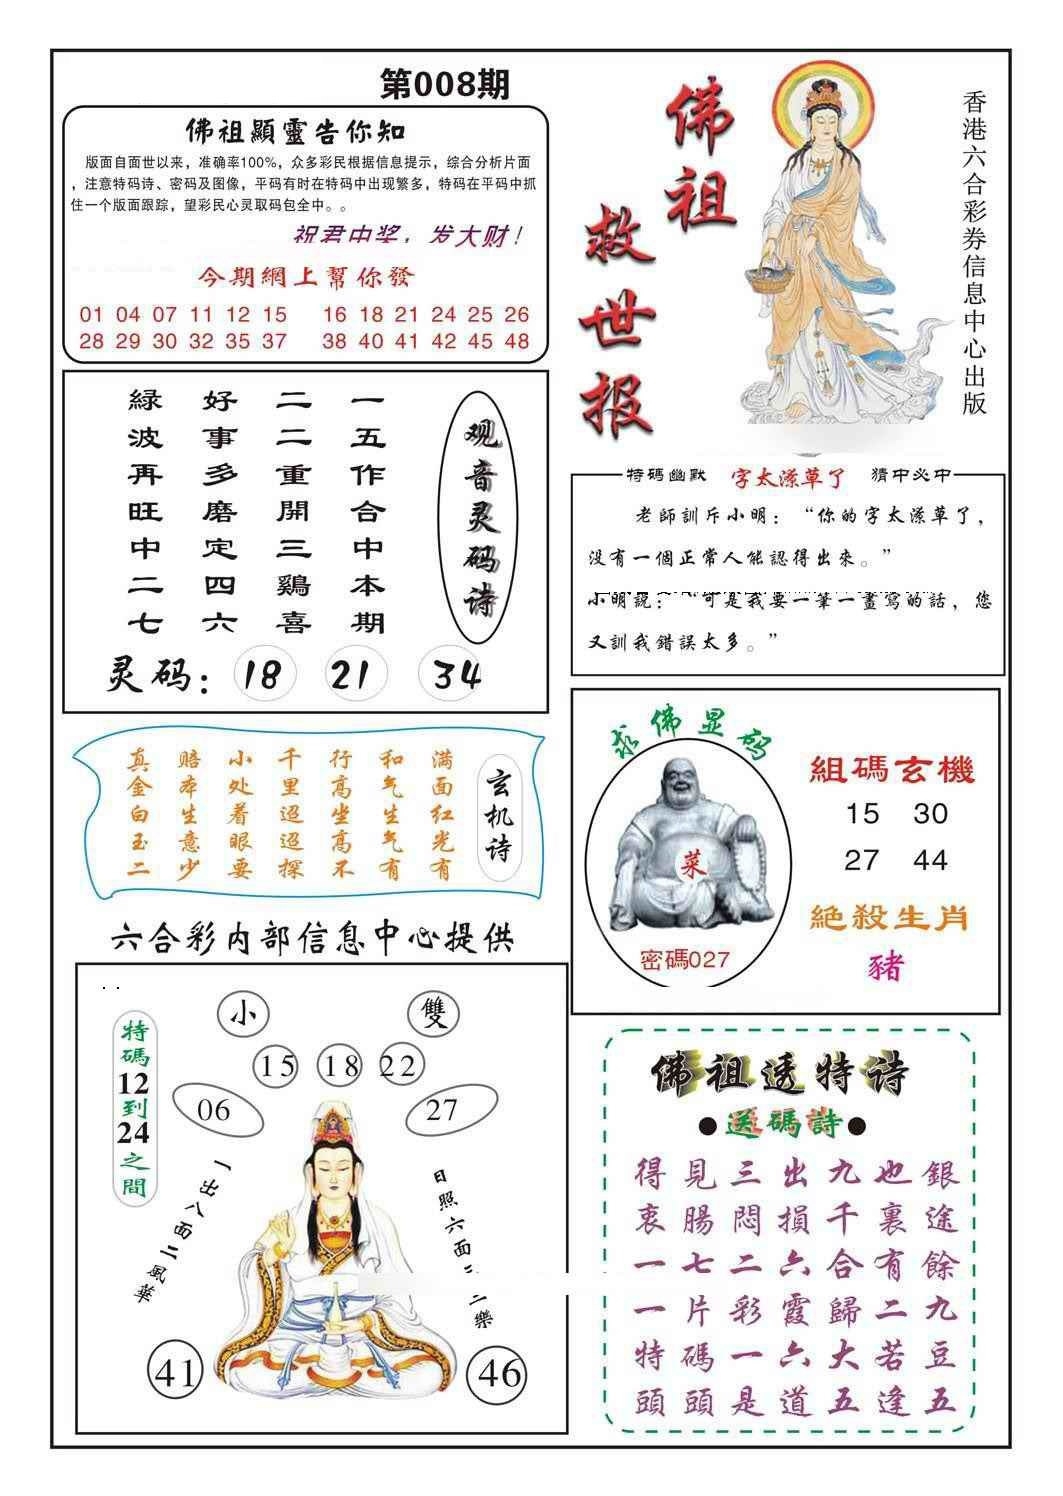 第008期
佛祖顯靈告你知
版面自面世以来，准确率100%，众多彩民根据信息提示，综合分析片面
，注意特码诗、密码及图像，平码有时在特码中出现繁多，特码在平码中抓
住一个版面跟踪，望彩民心灵取码包全中。。
祝君中奖，发大财！
今期網上幫你發
01 04 07 11 12 15 16 18 21 24 25 26
28 29 30 32 35 37 38 40 41 42 45 48
佛祖
救世报
香港六合彩券信息中心出版
观音灵码诗
一五作合中本期
二二重開三鷄喜
好事多磨定四六
緑波再旺中二七
灵码：18 21 34
特碼幽默 字太潦草了 猜中必中
老師訓斥小明：“你的字太潦草了，
没有一個正常人能認得出來。”
小明説：“可是我要一筆一畫寫的話，您
又訓我錯誤太多。”
玄机诗
满面红光有
和气生气有
行高坐高不
千里迢迢探
小处着眼要
赔本生意少
真金白玉二
求佛显码
菜
密碼027
組碼玄機
15 30
27 44
絕殺生肖
豬
六合彩内部信息中心提供
特碼12到24之間
小 雙
15 18 22
06 27
一出八面二風華
日照六面三二樂
41 46
佛祖透特诗
●送碼詩●
得見三出九也銀
衷腸悶損千裏途
一七二六合有餘
一片彩霞歸二九
特碼一六大若豆
頭頭是道五逢五